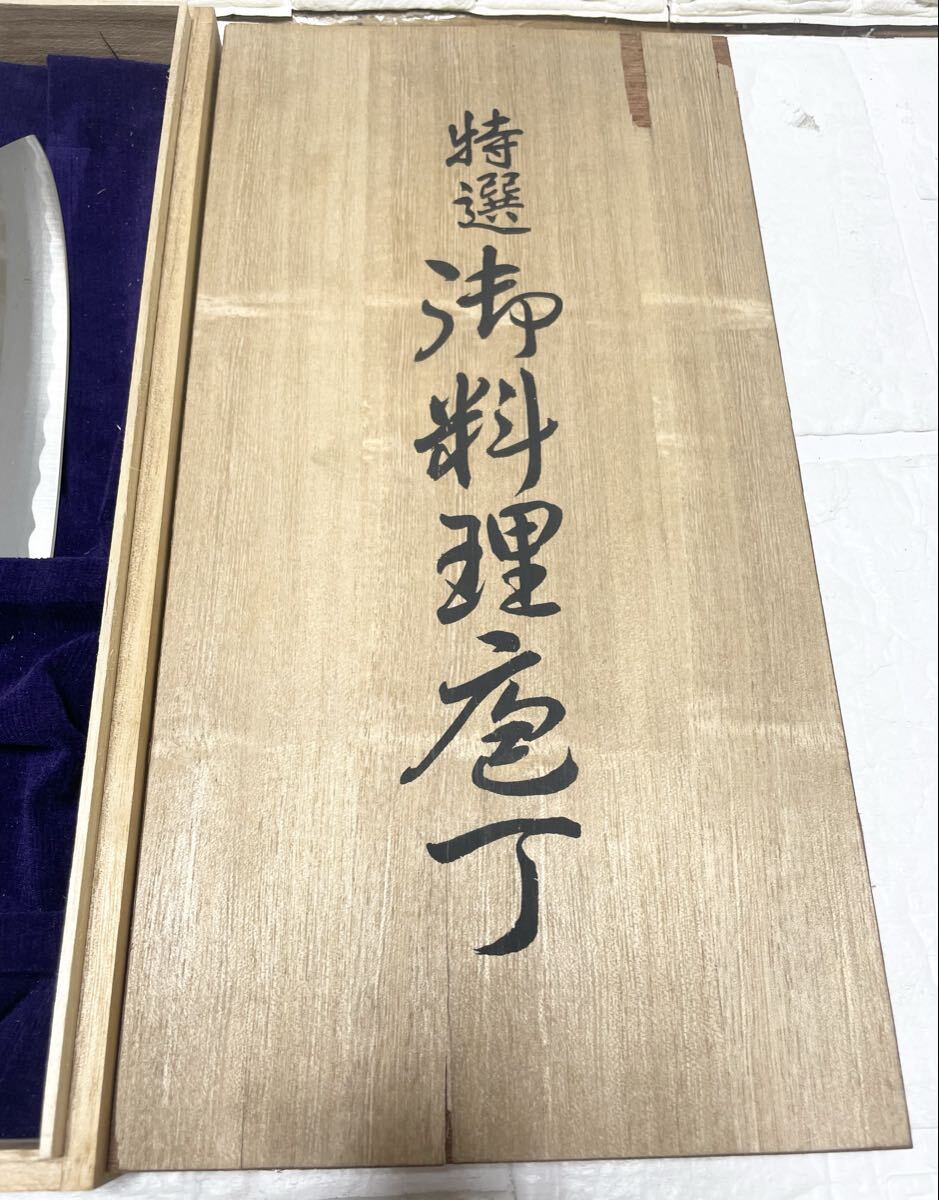 特選
御料理庖丁